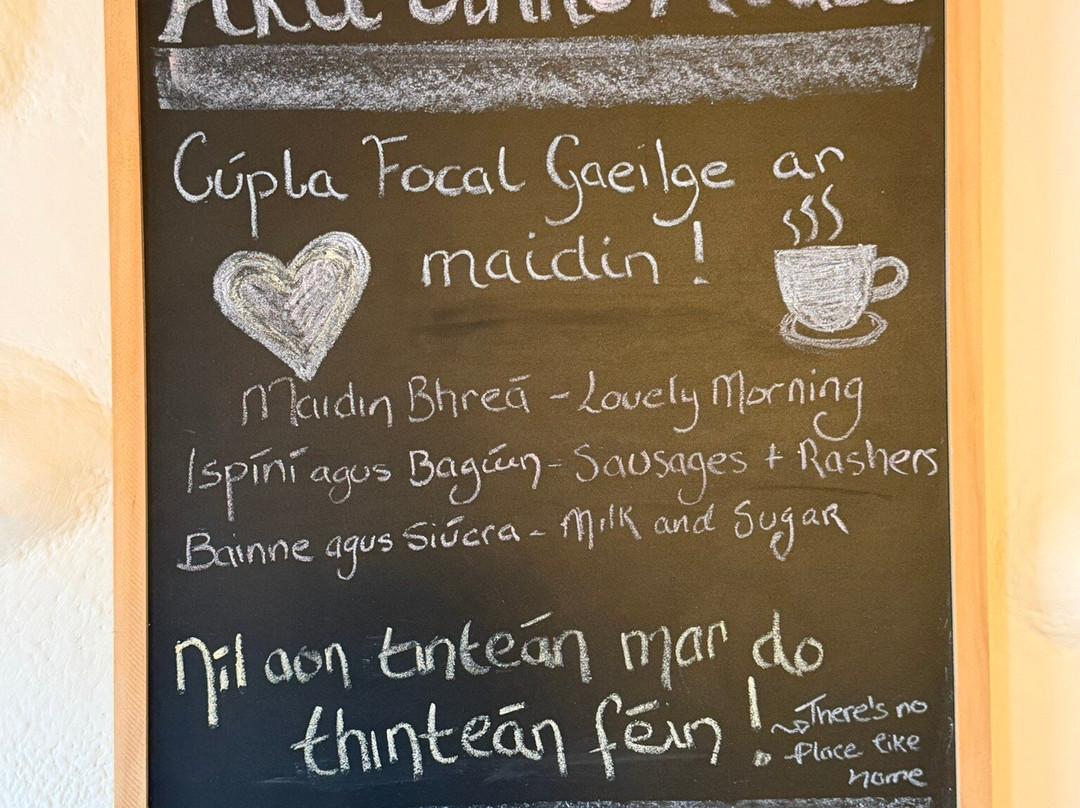 Cúpla Focal Gaeilge ar
maidin!
Maidin Bhreá - Lovely Morning
Ispíní agus Bagún - Sausages + Rashers
Bainne agus Siúcra - Milk and Sugar
Níl aon tinteán mar do
thinteán féin!
There's no
Place like
home